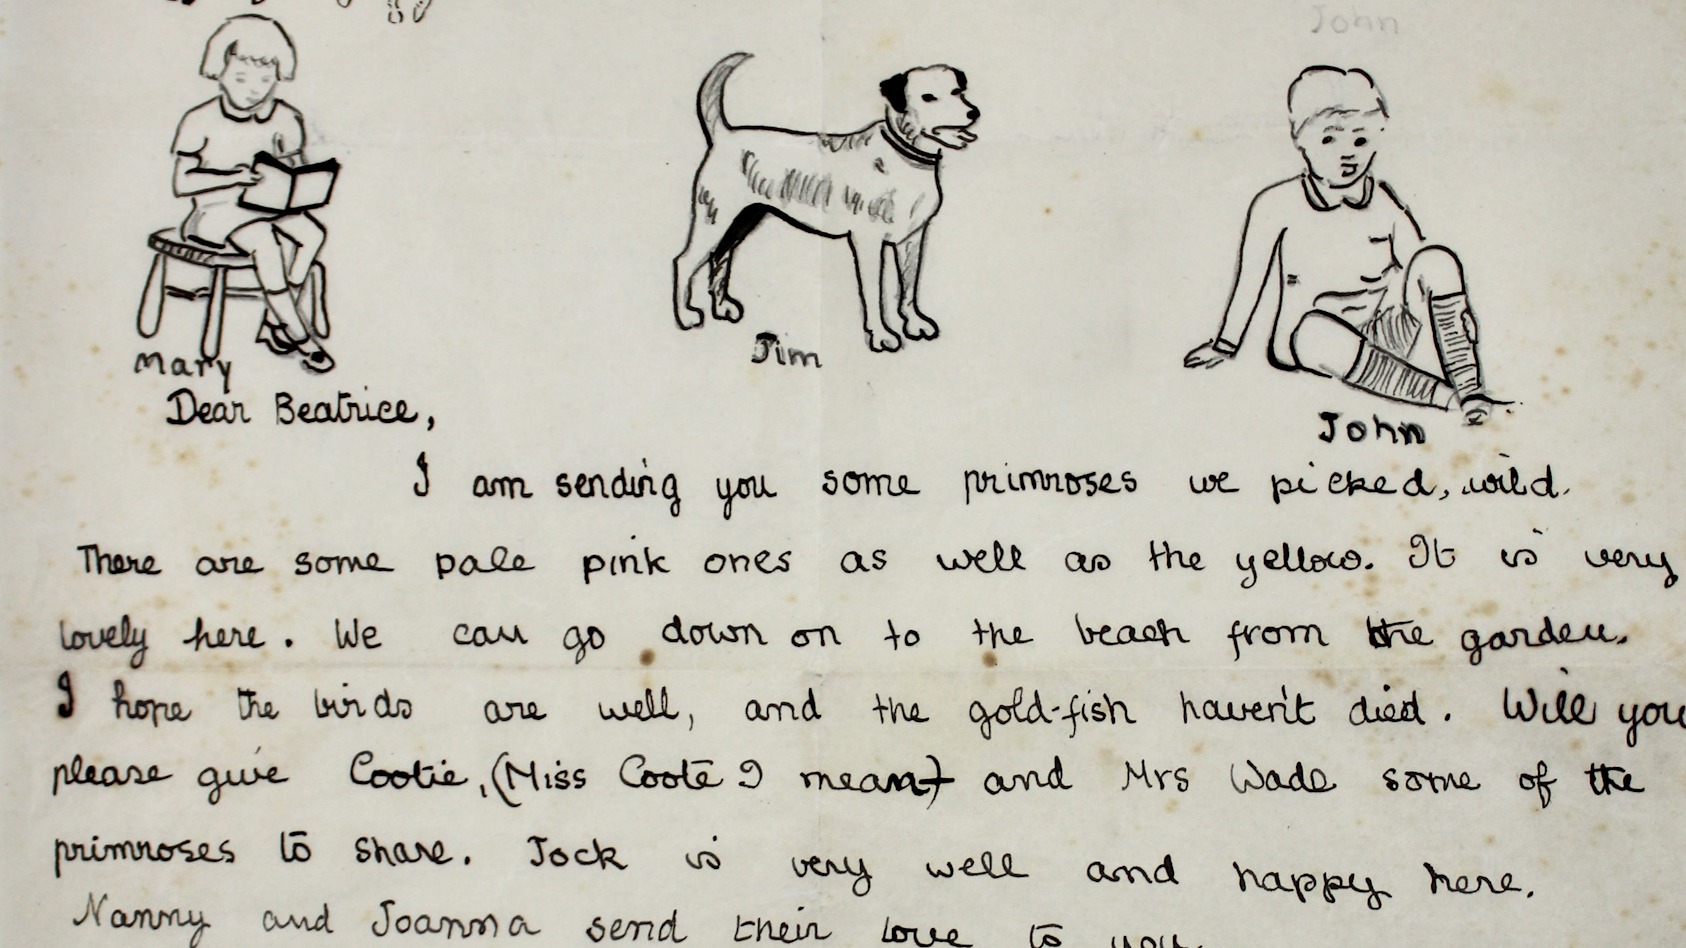 John
Mary
Jim
John
Dear Beatrice,
I am sending you some primroses we picked, wild.
There are some pale pink ones as well as the yellow. It is very
lovely here. We can go down on to the beach from the garden.
I hope the birds are well, and the gold-fish haven't died. Will you
please give Cootie, (Miss Coote I mean) and Mrs Wade some of the
primroses to share. Jock is very well and happy here.
Nanny and Joanna send their love to you.